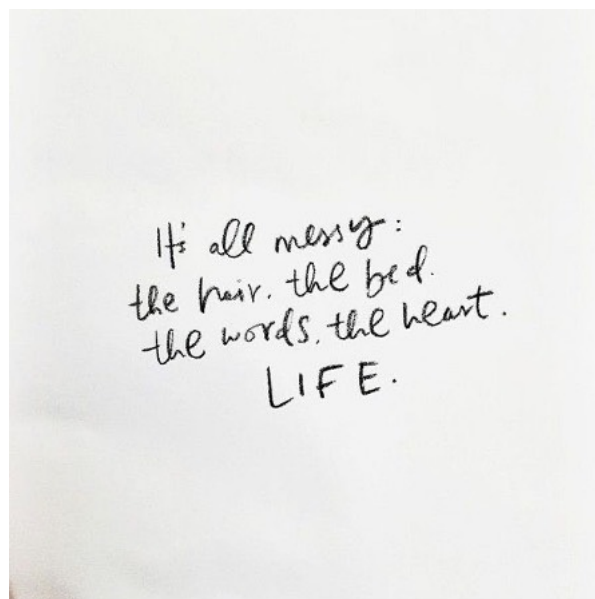 It's all messy:
the hair. the bed.
the words. the heart.
LIFE.